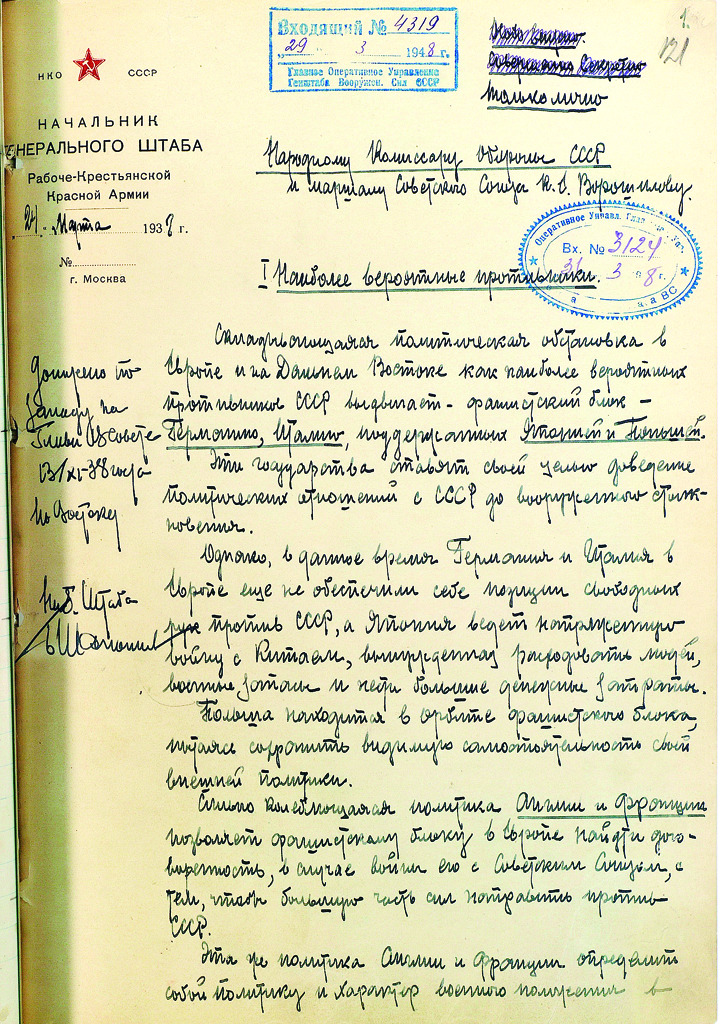 НКО СССР
НАЧАЛЬНИК
ГЕНЕРАЛЬНОГО ШТАБА
Рабоче-Крестьянской
Красной Армии
24 Марта 1938 г.
№
г. Москва
Входящий № 4319
"29" 3 1948 г.
Главное Оперативное Управление
Генштаба Вооружен. Сил СССР
1.
121
только лично
Народному Комиссару Обороны СССР
и маршалу Советского Союза К. Е. Ворошилову.
Оперативное Управл.
Вх. № 3124
31 3 8 г.
I Наиболее вероятные противники.
Складывающаяся политическая обстановка в
Европе и на Дальнем Востоке как наиболее вероятных
противников СССР выдвигает - фашистский блок -
Германию, Италию, поддержанных Японией и Польшей.
Эти государства ставят своей целью доведение
политических отношений с СССР до вооруженного столк-
новения.
Однако, в данное время Германия и Италия в
Европе еще не обеспечили себе позиции свободных
рук против СССР, а Япония ведет напряженную
войну с Китаем, вынужденная расходовать людей,
военные запасы и нести большие денежные затраты.
Польша находится в орбите фашистского блока,
пытаясь сохранить видимую самостоятельность своей
внешней политики.
Сильно колеблющаяся политика Англии и Франции
позволяет фашистскому блоку в Европе найти дого-
воренность, в случае войны его с Советским Союзом, с
тем, чтобы большую часть сил направить против
СССР.
Эта же политика Англии и Франции определит
собой политику и характер военного положения в
Доложено по
Западу на
Главн В Совете
13/XI-38 года
по Востоку
Нач. Штаба